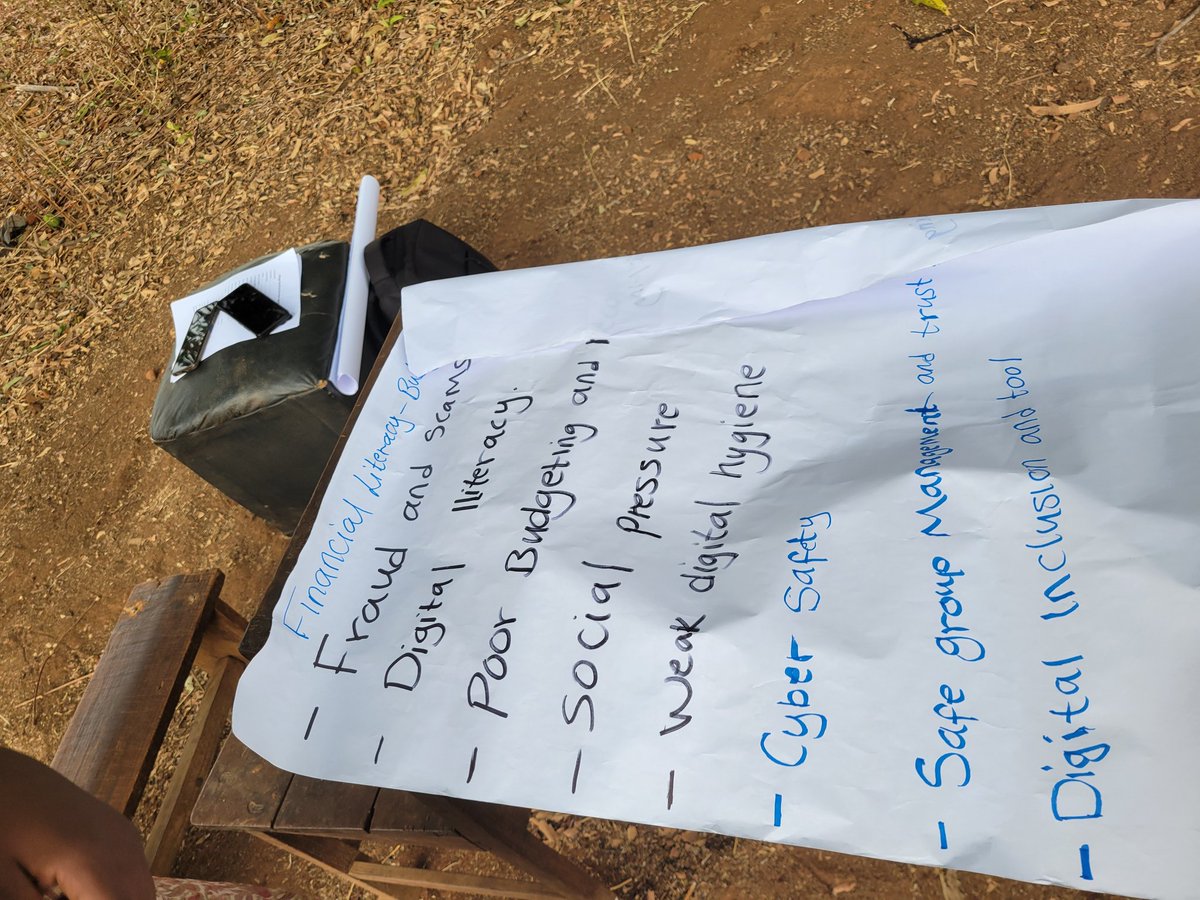 Financial Literacy-
- Fraud and scams
- Digital Illiteracy.
- Poor Budgeting and
- Social pressure
- Weak digital hygiene
- Cyber Safety
- Safe group Management and trust
- Digital Inclusion and tool